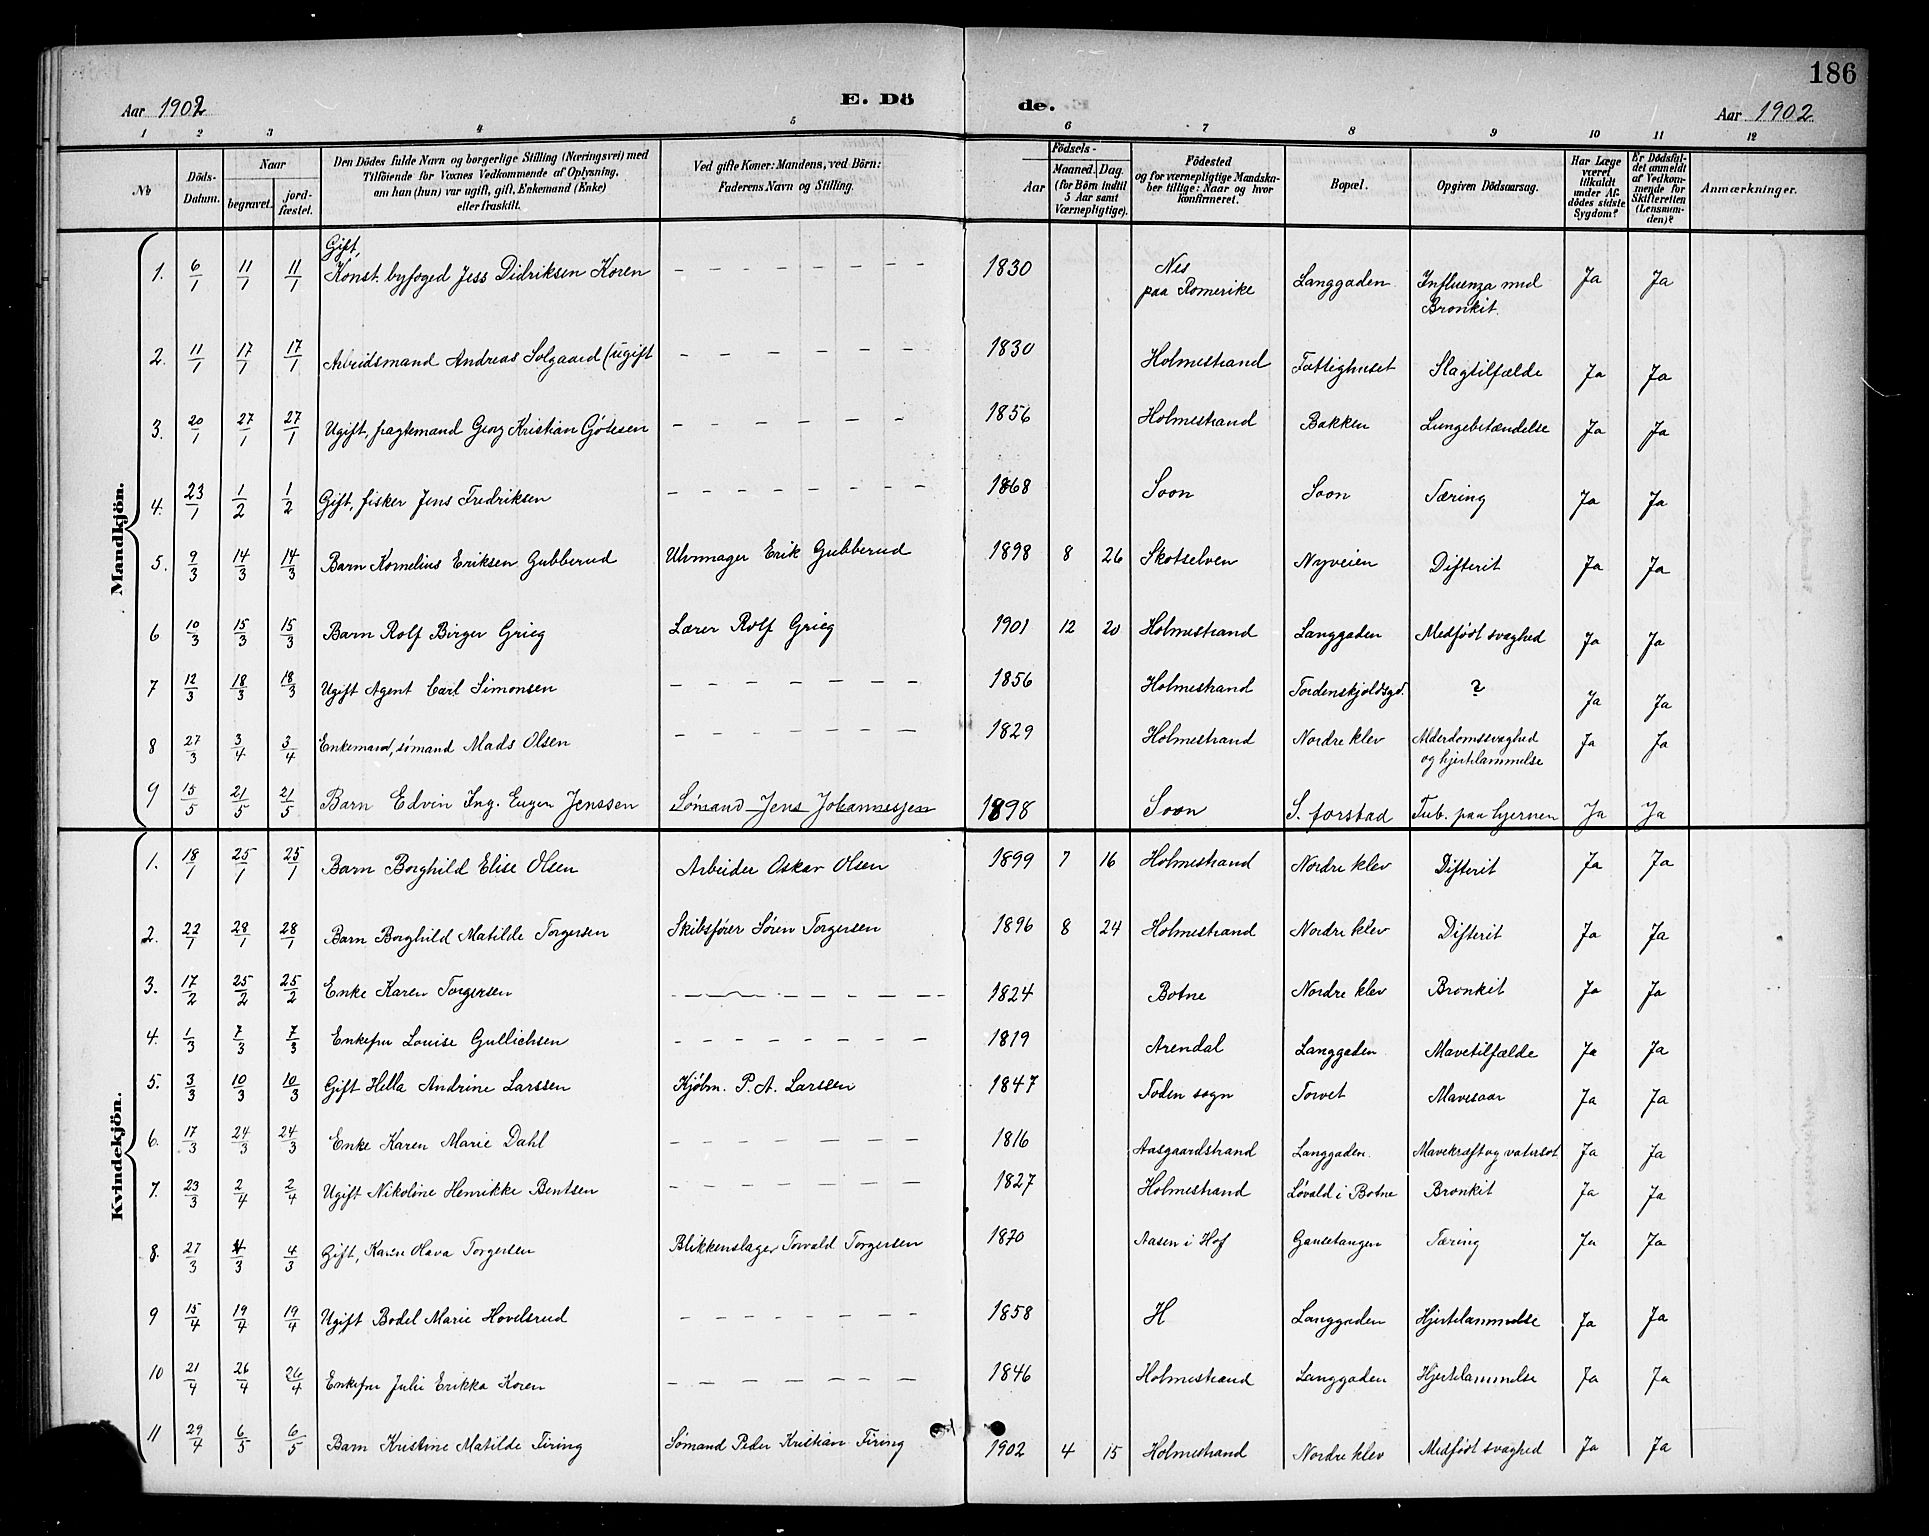 186
Aar 1902
E. Dö
de.
Aar 1902
1 2 3 4 5 6 7 8 9 10 11 12
No
Döds-Datum.
Naar
begravet.
jord-fæstet.
Den Dödes fulde Navn og borgerlige Stilling (Næringsvei) med
Tilföiende for Voxnes Vedkommende af Oplysning,
om han (hun) var ugift, gift, Enkemand (Enke)
eller fraskilt.
Ved gifte Koner: Mandens, ved Börn:
Faderens Navn og Stilling.
Födsels-
Aar
Maaned. Dag.
(for Börn indtil
5 Aar samt
Værnepligtige).
Födested
og for værnepligtige Mandska-
ber tillige: Naar og hvor
konfirmeret.
Bopæl.
Opgiven Dödsaarsag.
Har Læge
været
tilkaldt
under Af-
dödes sidste
Sygdom?
Er Dödsfal-
det anmeldt
af Vedkom-
mende for
Skifteretten
(Lensman-
den)?
Anmærkninger.
Mandkjön.
Gift,
1. 6/1 11/1 11/1 Konst. byfoged Jess Didriksen Koren — — — 1830 Nes paa Romerike Langgaden Influenza med Bronkit. Ja Ja
2. 11/1 17/1 17/1 Arbeidsmand Andreas Solgaard (ugift — — — 1830 Holmestrand Fattighuset Slagtilfælde Ja Ja
3. 20/1 27/1 27/1 Ugift, fragtemand Georg Kristian Gøtesen — — — 1856 Holmestrand Bakken Lungebetændelse Ja Ja
4. 23/1 1/2 1/2 Gift, fisker Jens Fredriksen — — — 1868 Soon Soon Tæring Ja Ja
5. 9/3 14/3 14/3 Barn Kornelius Eriksen Gubberud Uhrmager Erik Gubberud 1898 8 26 Skotselven Nyveien Difterit Ja Ja
6 10/3 15/3 15/3 Barn Rolf Birger Grieg Lærer Rolf Grieg 1901 12 20 Holmestrand Langgaden Medfødt svaghed Ja Ja
7 12/3 18/3 18/3 Ugift Agent Carl Simonsen — — — 1856 Holmestrand Tordenskjoldsgd. ? Ja Ja
8 27/3 3/4 3/4 Enkemand, sømand Mads Olsen — — — 1829 Holmestrand Nordre klev Alderdomssvaghed og hjertelammelse Ja Ja
9 15/5 21/5 21/5 Barn Edvin Ing. Eugen Jenssen Sømand Jens Johannessen 1898 Soon S. forstad Tub. paa hjernen Ja Ja
Kvindekjön.
1. 18/1 25/1 25/1 Barn Borghild Elise Olsen Arbeider Oskar Olsen 1899 7 16 Holmestrand Nordre klev Difterit Ja Ja
2. 22/1 28/1 28/1 Barn Borghild Matilde Torgersen Skibsfører Søren Torgersen 1896 8 24 Holmestrand Nordre klev Difterit Ja Ja
3. 17/2 25/2 25/2 Enke Karen Torgersen — — — 1824 Botne Nordre klev Bronkit Ja Ja
4. 1/3 7/3 7/3 Enkefru Louise Gullichsen — — — 1819 Arendal Langgaden Mavetilfælde Ja Ja
5. 3/3 10/3 10/3 Gift Hella Andrine Larssen Kjøbm. P. A. Larssen 1847 Foden sogn Torvet Mavesaar Ja Ja
6. 17/3 24/3 24/3 Enke Karen Marie Dahl — — — 1816 Aasgaardstrand Langgaden. Mavekræft og vatersot Ja Ja
7. 23/3 2/4 2/4 Ugift Nikoline Henrikke Bentsen — — — 1827 Holmestrand Løvald i Botne Bronkit Ja Ja
8. 27/3 4/3 4/3 Gift, Karen Hava Torgersen Blikkenslager Torvald Torgersen 1870 Aasen i Hof Gausetangen Tæring Ja Ja
9 15/4 19/4 19/4 Ugift Bodel Marie Hovelsrud — — — 1858 H Langgaden Hjertelammelse Ja Ja
10 21/4 26/4 26/4 Enkefru Julie Erikka Koren — — — 1846 Holmestrand Langgaden Hjertelammelse Ja Ja
11 29/4 6/5 6/5 Barn Kristine Matilde Firing Sømand Peder Kristian Firing 1902 4 15 Holmestrand Nordre klev Medfødt svaghed Ja Ja